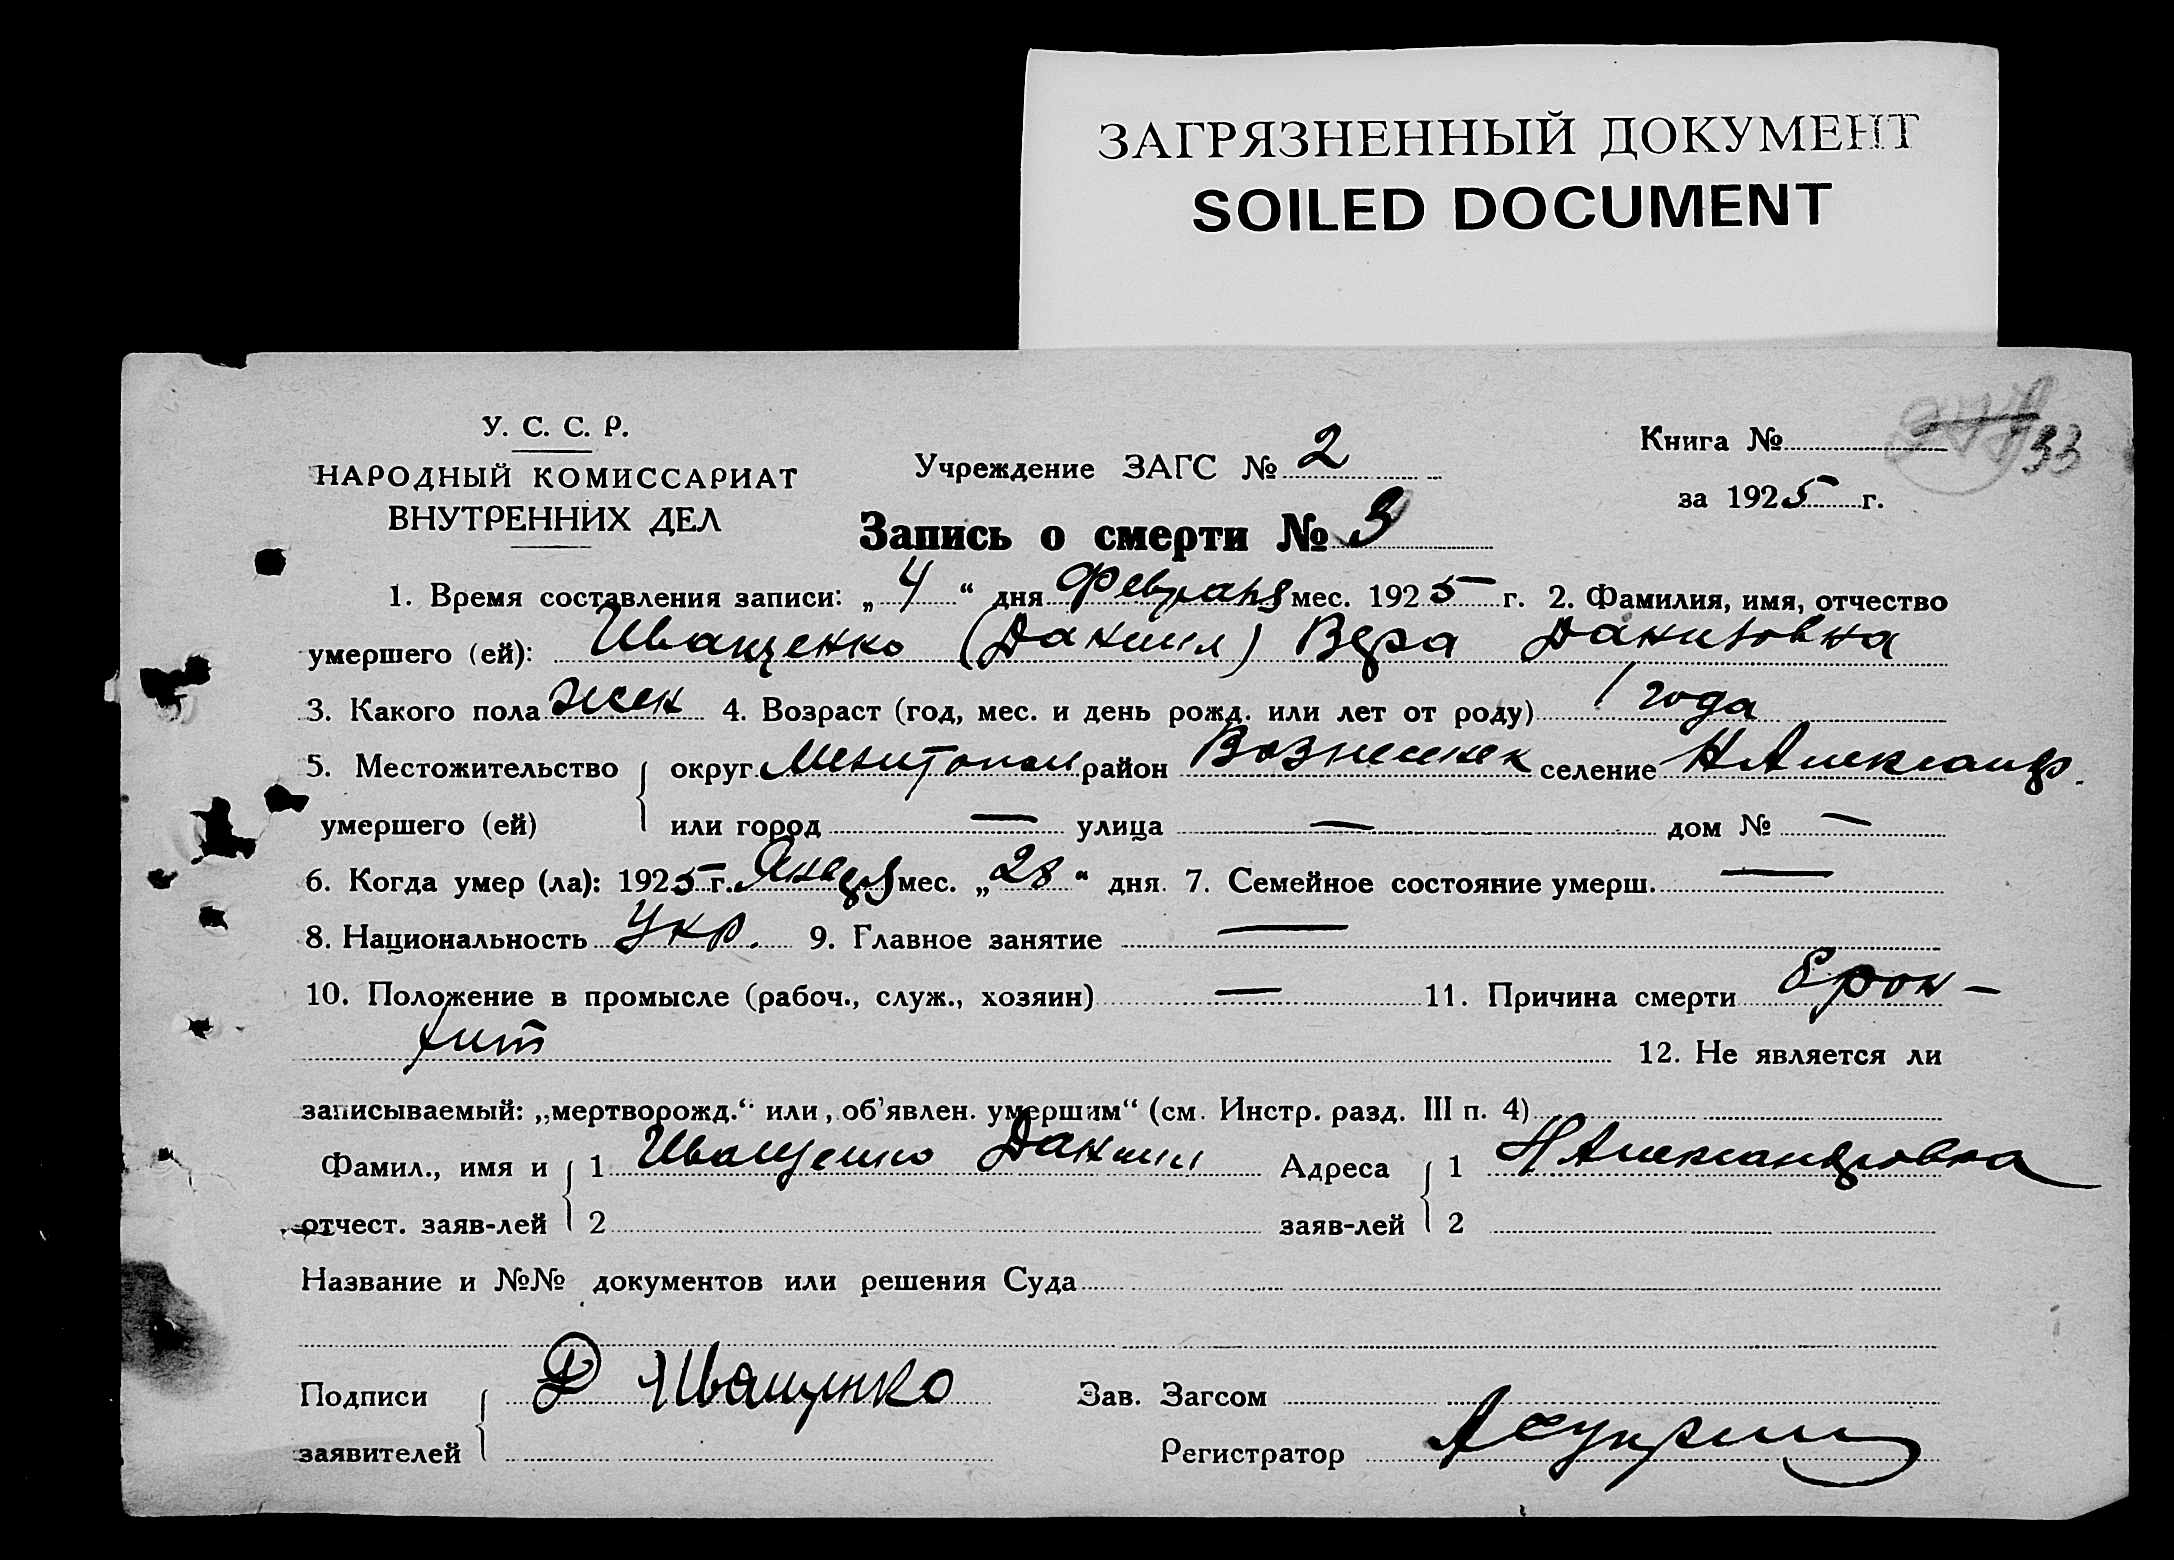 ЗАГРЯЗНЕННЫЙ ДОКУМЕНТ
SOILED DOCUMENT
У. С. С. Р.
НАРОДНЫЙ КОМИССАРИАТ
ВНУТРЕННИХ ДЕЛ
Учреждение ЗАГС № 2
Книга № 33
за 1925 г.
Запись о смерти № 3
1. Время составления записи: „ 4 “ дня Февраля мес. 1925 г. 2. Фамилия, имя, отчество
умершего (ей): Иващенко (Даниил) Вера Даниловна
3. Какого пола жен 4. Возраст (год, мес. и день рожд. или лет от роду) 1 года
5. Местожительство округ Мелитопол район Вознесенск селение Н Александр.
умершего (ей) или город — улица — дом № —
6. Когда умер (ла): 1925 г. Января мес. „ 28 “ дня. 7. Семейное состояние умерш. —
8. Национальность Укр. 9. Главное занятие —
10. Положение в промысле (рабоч., служ., хозяин) — 11. Причина смерти Брон-
хит 12. Не является ли
записываемый: „мертворожд.“ или „об'явлен. умершим“ (см. Инстр. разд. III п. 4)
Фамил., имя и 1 Иващенко Даниил Адреса 1 Н Александровка
отчест. заяв-лей 2 заяв-лей 2
Название и №№ документов или решения Суда
Подписи Д Иващенко Зав. Загсом
заявителей Регистратор